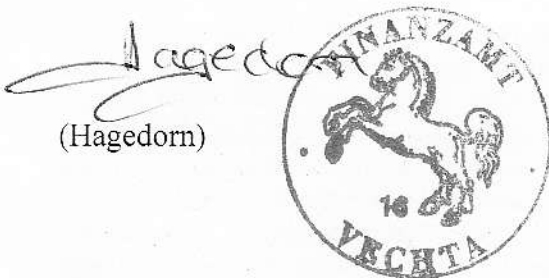 Hagedorn
(Hagedorn)
FINANZAMT
16
VECHTA